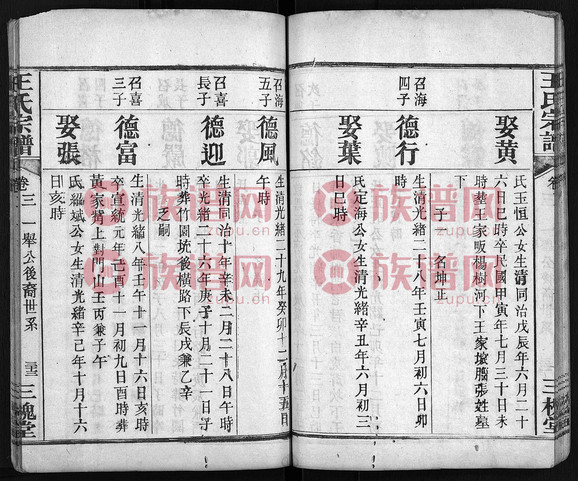 王氏宗譜
娶黄
氏玉恒公女生清同治戊辰年六月二十
六日巳時卒民國甲寅年七月三十日未
時葬王家畈楊樹河下王家坡腦張姓墓
子二 名坤正
召海
四子
德行
生清光緒二十八年壬寅七月初六日卯
時
娶葉
氏定海公女生清光緒辛丑年六月初三
日巳時
三槐堂
召海
五子
德風
生清光緒二十九年癸卯十二月十五日
午時
召喜
長子
德迎
生清同治十年辛未二月二十八日午時
卒光緒二十六年庚子十月二十一日子
時葬竹園坑後橫路下辰戌兼乙辛
乏嗣
召喜
三子
德富
生清光緒八年壬午十一月十六日亥時
卒宣統元年己酉十一月初九日酉時葬
黃家嘴上對門山壬丙兼子午
娶張
氏繼斌公女生清光緒辛巳年十月十六
日亥時
王氏宗譜
卷三
一舉公後裔世系
三槐堂
族譜网
zupu.cn
族譜网
zupu.cn
族譜网
zupu.cn
族譜网
zupu.cn